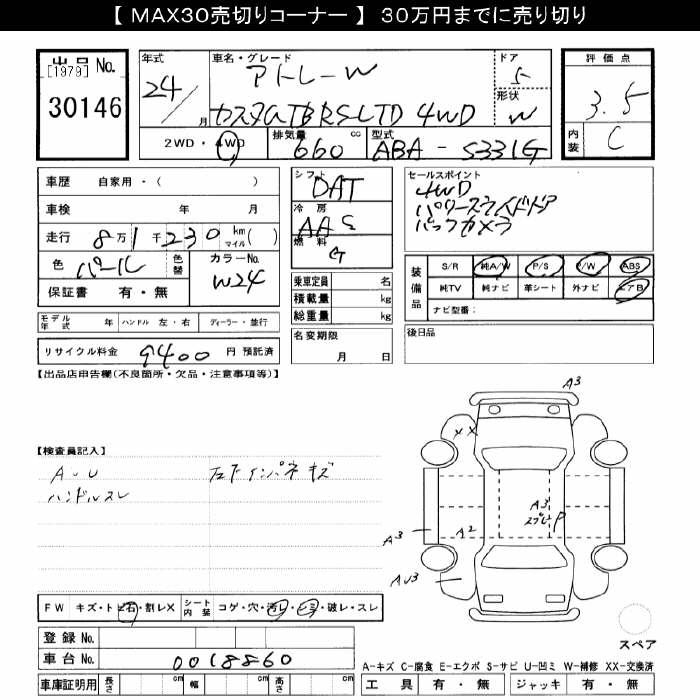 【 MAX30売切りコーナー 】 30万円までに売り切り
出品 No.
[1979]
30146
年式
24/
月
車名・グレード
アトレーW
カスタムTBRSLTD 4WD
ドア
5
形状
W
評価点
3.5
内装
C
2WD・4WD
排気量
660
cc
型式
ABA - S331G
車歴 自家用・( )
車検 年 月
走行 8万1千230 km マイル( )
色 パール
色替
カラーNo.
W24
保証書 有・無
シフト
DAT
冷房
AAC
燃料
G
乗車定員 名
積載量 kg
総重量 kg
セールスポイント
4WD
パワースライドドア
バックカメラ
装備品
S/R 純A/W P/S P/W ABS
純TV 純ナビ 革シート 外ナビ エアB
ナビ型番:
モデル年式 年 ハンドル 左・右 ディーラー・並行
名変期限
月 日
後日品
リサイクル料金 9400 円 預託済
【出品店申告欄(不良箇所・欠品・注意事項等)】
A3
XX
【検査員記入】
A・U
ハンドルスレ
左下インパネキズ
A3
P
A2
A3
AU3
FW キズ・トビ石・割レX
シート内装
コゲ・穴・汚レ・シミ・破レ・スレ
登録 No.
車台 No.
0018860
スペア
A-キズ C-腐食 E-エクボ S-サビ U-凹ミ W-補修 XX-交換済
車庫証明用 長さ cm 幅 cm 高さ cm
工具 有・無 ジャッキ 有・無